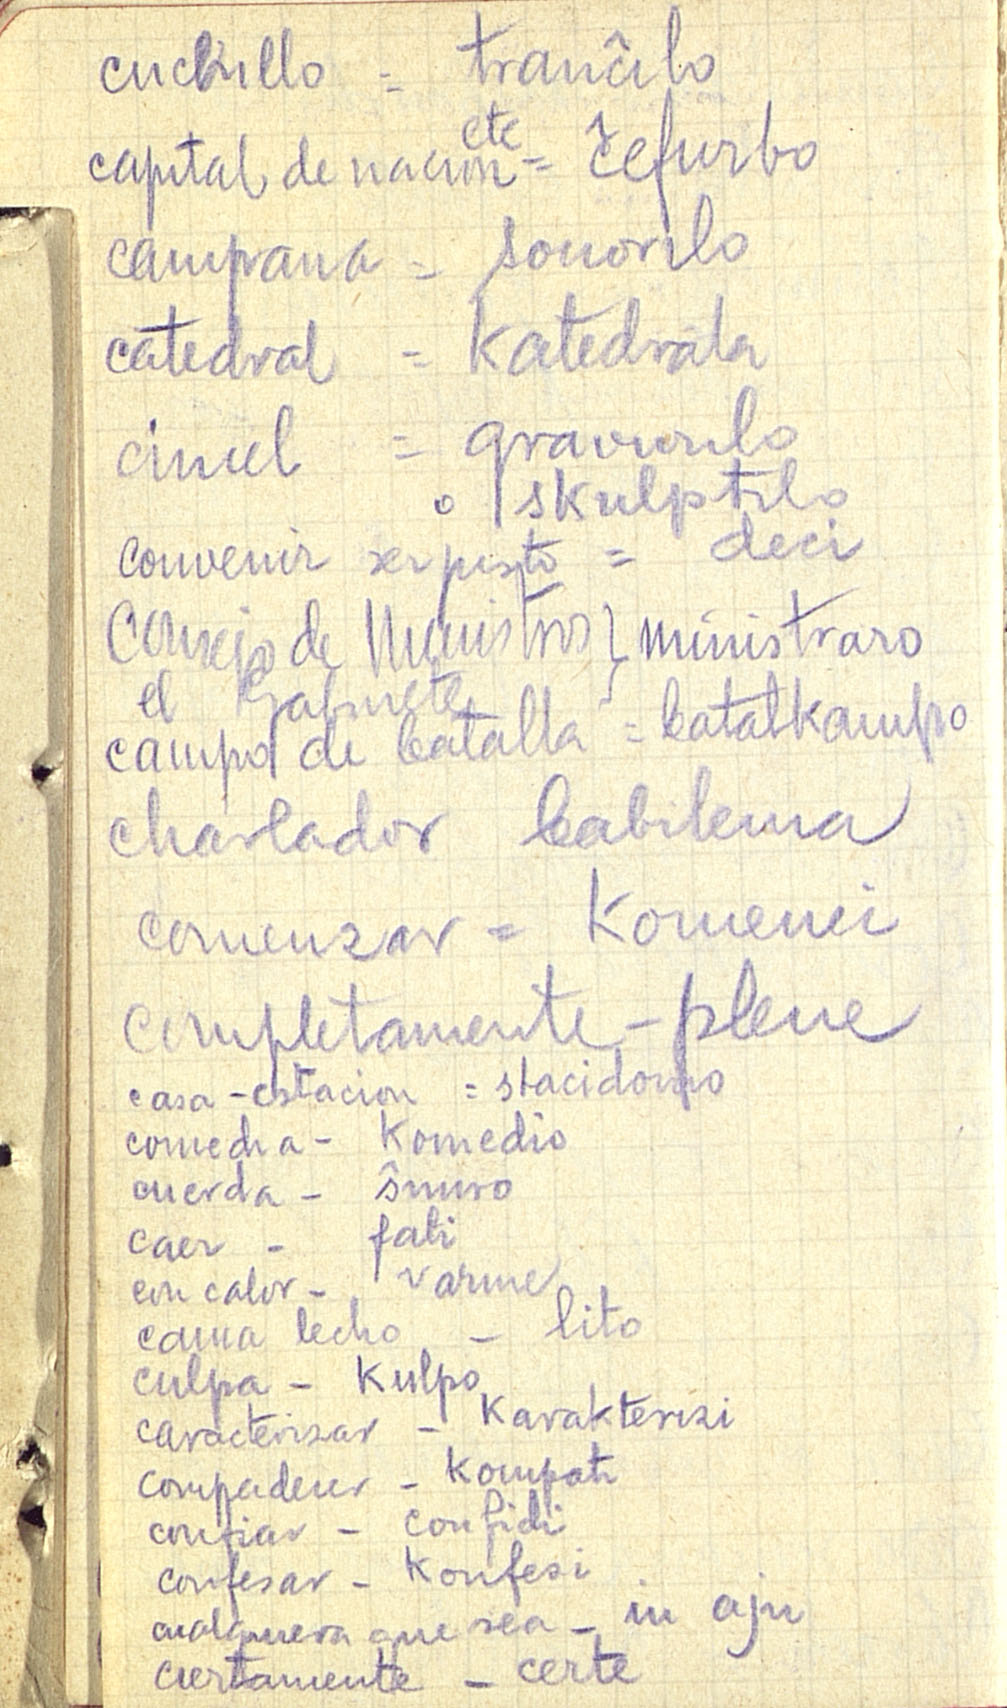 cuchillo = tranĉilo
capital de nacion etc = ĉefurbo
campana = sonorilo
catedral = Katedrala
cincel = gravurilo
o skulptilo
convenir ser justo = deci
Consejo de Ministros } ministraro
el Gabinete
campo de batalla = batalkampo
charlador babilema
comenzar = Komenci
completamente - plene
casa-estacion = stacidomo
comedia - Komedio
cuerda - ŝnuro
caer - fali
con calor - varme
cama lecho - lito
culpa - Kulpo
caracterizar - Karakterizi
compadecer - Kompati
confiar - confidi
confesar - Konfesi
cualquiera que sea - iu ajn
ciertamente - certe